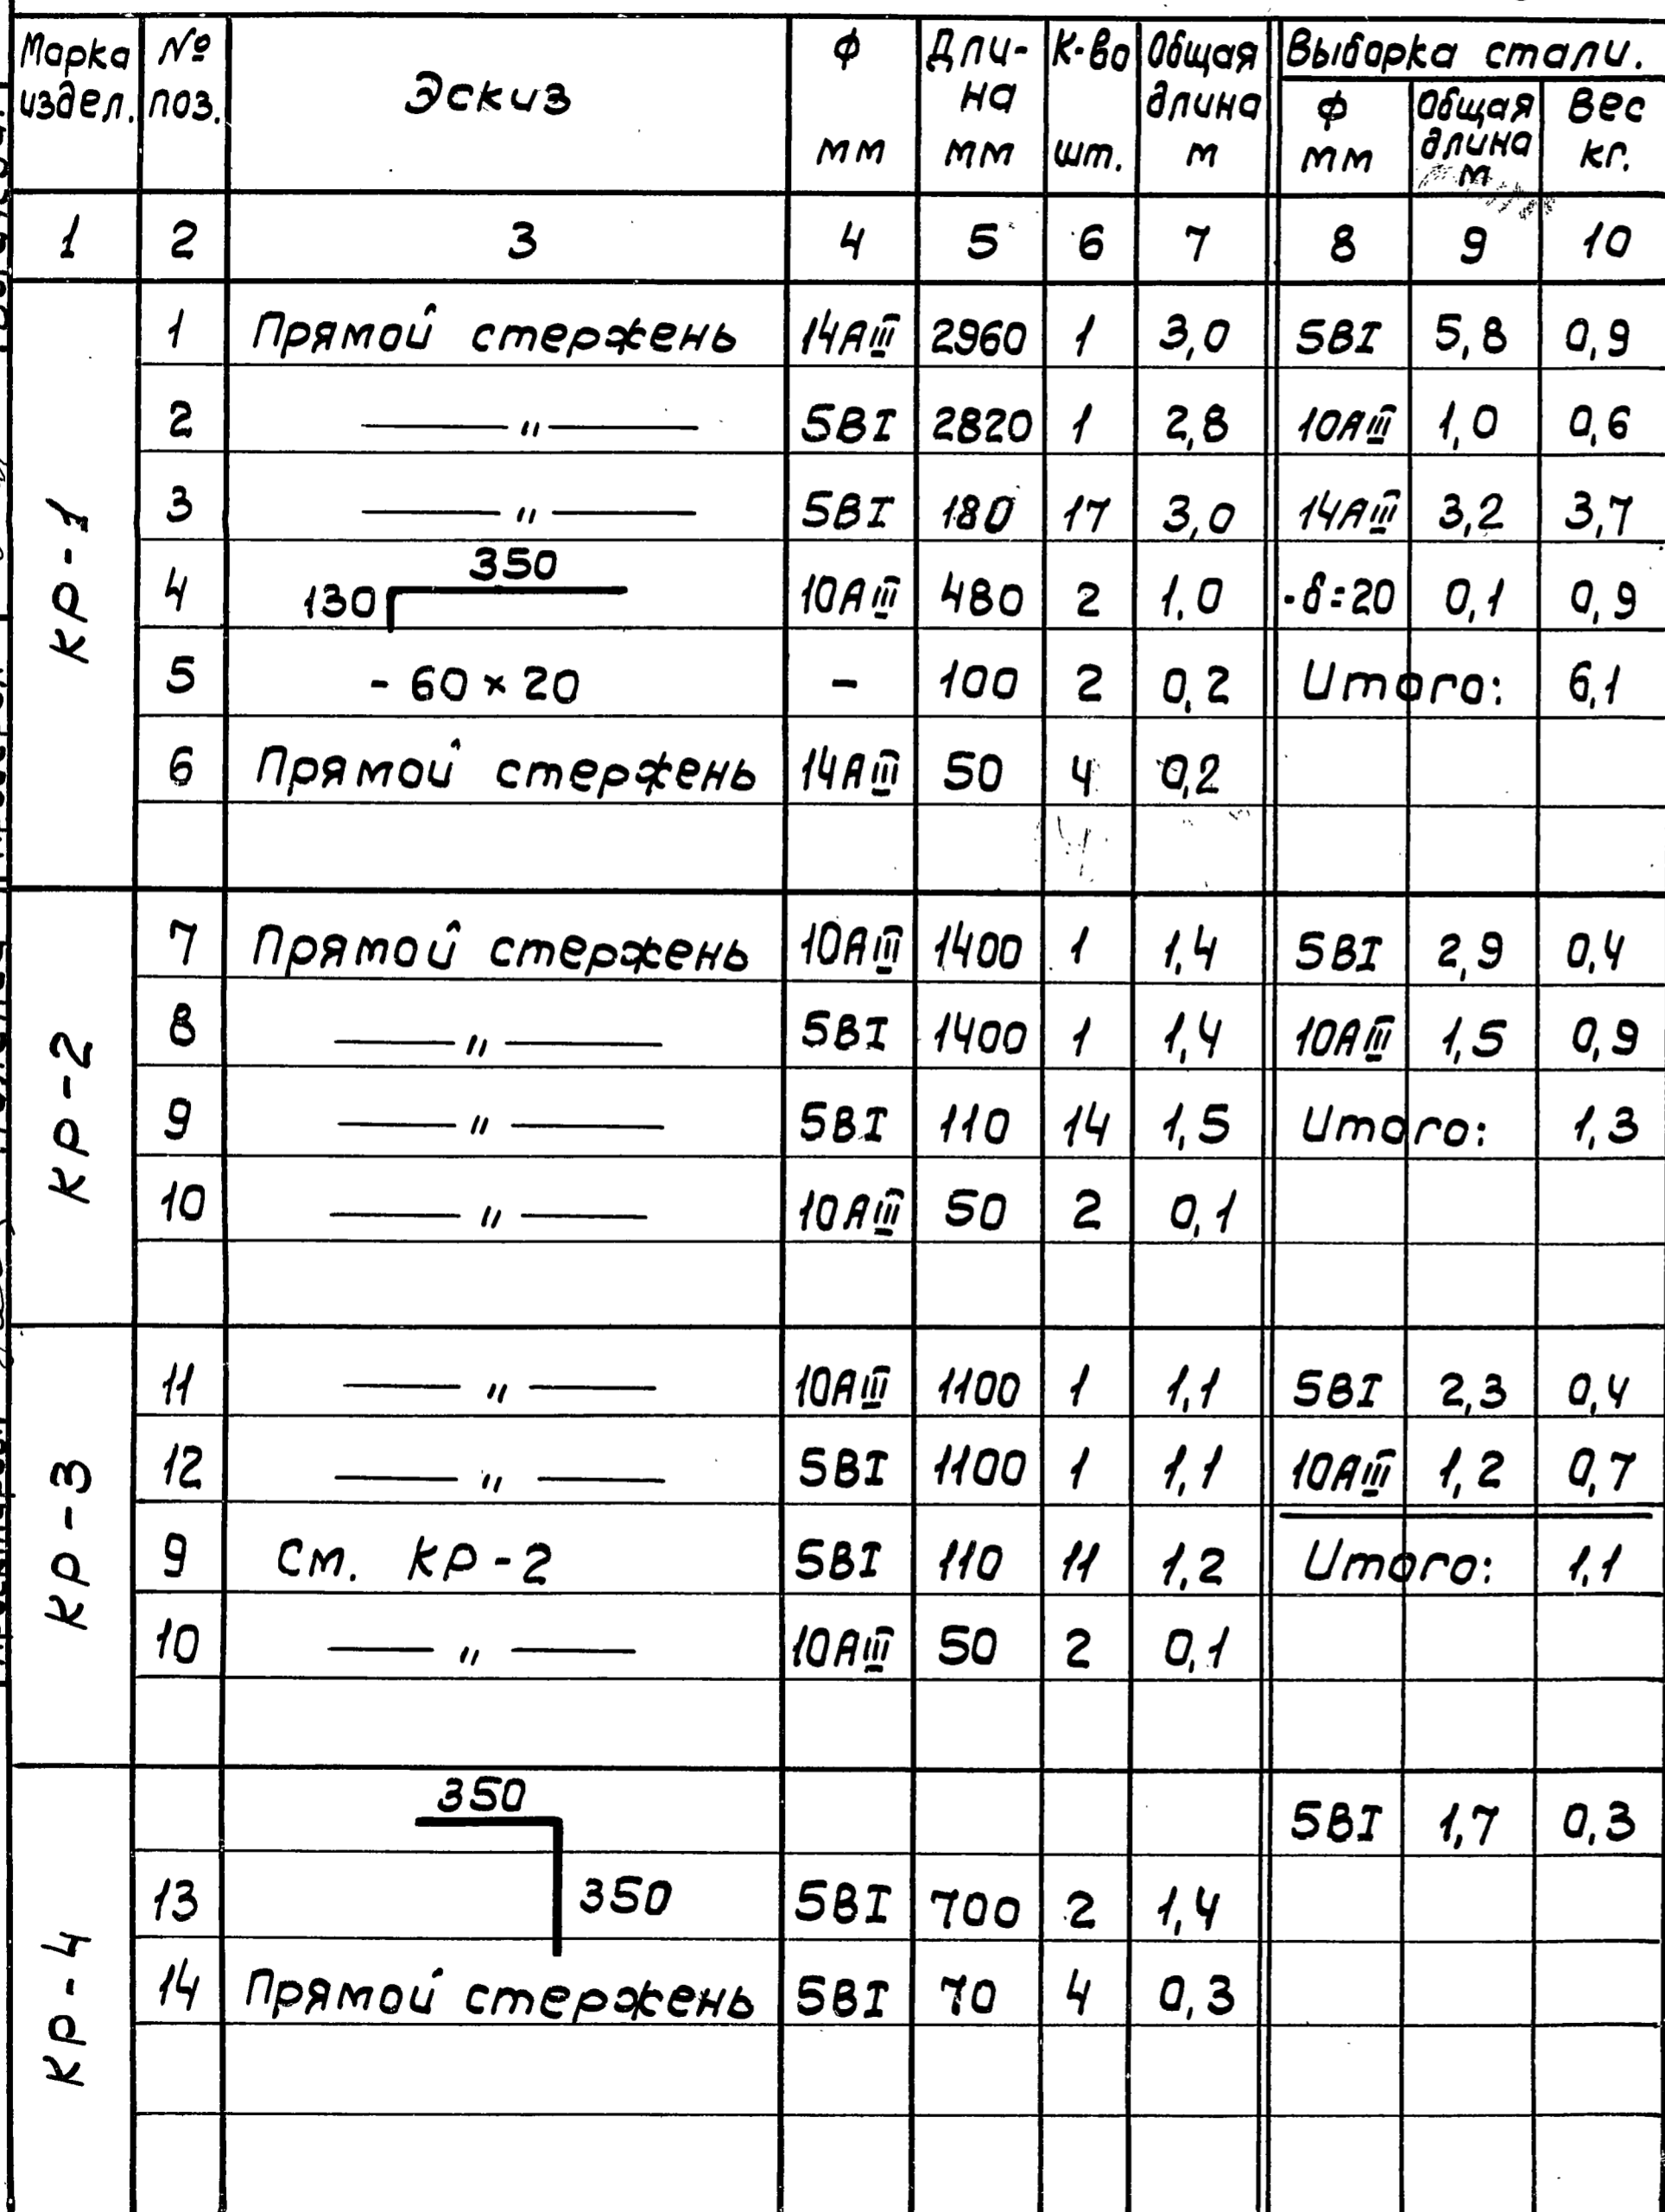 Марка издел. № поз. Эскиз ф мм Дли-на мм К-во шт. Общая длина м Выборка стали.
ф мм Общая длина м Вес кг.
1 2 3 4 5 6 7 8 9 10
КР-1
1 Прямой стержень 14АIII 2960 1 3,0 5ВI 5,8 0,9
2 —— " —— 5ВI 2820 1 2,8 10АIII 1,0 0,6
3 —— " —— 5ВI 180 17 3,0 14АIII 3,2 3,7
350
4 130 10АIII 480 2 1,0 -δ=20 0,1 0,9
5 - 60 × 20 - 100 2 0,2 Итого: 6,1
6 Прямой стержень 14АIII 50 4 0,2
КР-2
7 Прямой стержень 10АIII 1400 1 1,4 5ВI 2,9 0,4
8 —— " —— 5ВI 1400 1 1,4 10АIII 1,5 0,9
9 —— " —— 5ВI 110 14 1,5 Итого: 1,3
10 —— " —— 10АIII 50 2 0,1
КР-3
11 —— " —— 10АIII 1100 1 1,1 5ВI 2,3 0,4
12 —— " —— 5ВI 1100 1 1,1 10АIII 1,2 0,7
9 См. КР-2 5ВI 110 11 1,2 Итого: 1,1
10 —— " —— 10АIII 50 2 0,1
КР-4
350 5ВI 1,7 0,3
13 350 5ВI 700 2 1,4
14 Прямой стержень 5ВI 70 4 0,3